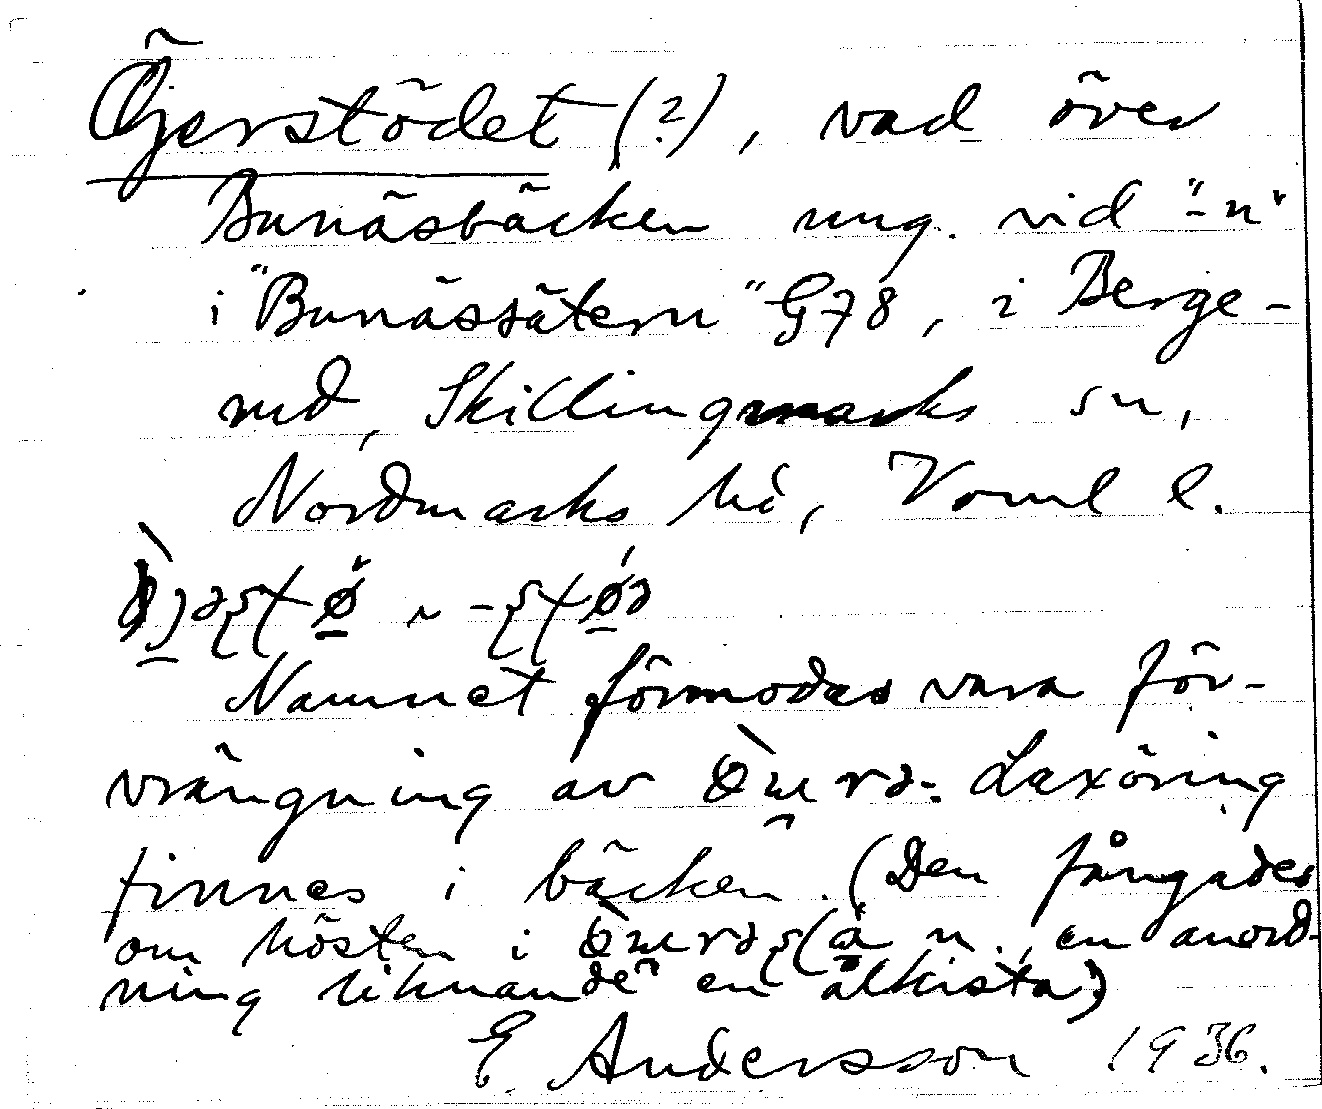 Öjerstödet (?), vad över
Bunäsbäcken ung. vid "-n"
i "Bunässätern" G78, i Berge-
rud, Skillingmarks sn,
Nordmarks hd, Vrml l.
Namnet förmodas vara för-
vrängning av Laxöring
finnes i bäcken. (Den fångades
om hösten i n., en anord-
ning liknande en ålkista)
E. Andersson 1936.